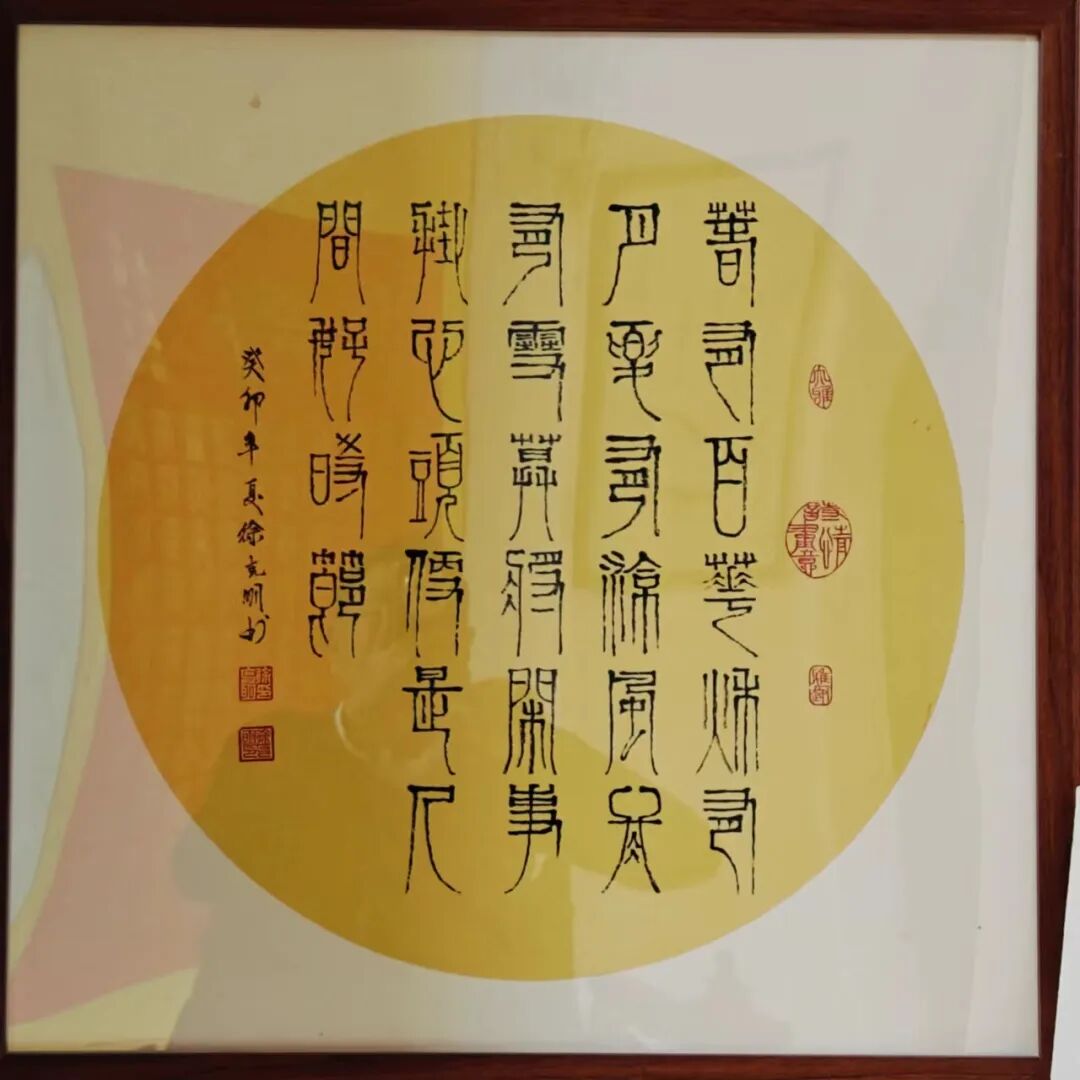 春有百華秋有
月夏有涼風冬
有雪莫將閑事
掛心頭便是人
間好時節
癸卯年夏徐克明书
詩情畫意